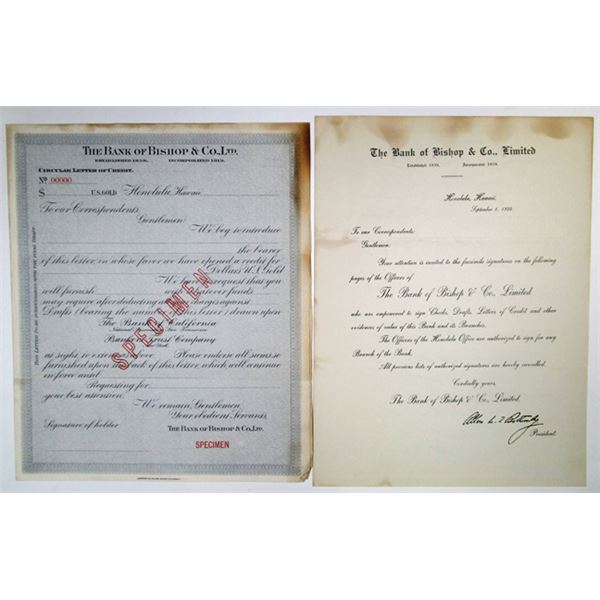 THE BANK OF BISHOP & CO., LTD.
ESTABLISHED 1858. INCORPORATED 1919.
CIRCULAR LETTER OF CREDIT.
No 00000
$ U.S. GOLD Honolulu, Hawaii,
To our Correspondents,
Gentlemen:
We beg to introduce
the bearer
of this letter, in whose favor we have opened a credit for
Dollars U.S. Gold
We request that you
will furnish with whatever funds
may require after deducting charges against
Drafts (bearing the number of this letter) drawn upon
The Bank of California
National Association, San Francisco
Bankers Trust Company
New York
at sight, to extent above. Please endorse all sums so
furnished upon the back of this letter, which will continue
in force until
Requesting for
your best attention,
We remain, Gentlemen,
Your obedient Servants,
Signature of holder THE BANK OF BISHOP & CO., LTD.
SPECIMEN
SPECIMEN
The Bank of Bishop & Co., Limited
Established 1858. Incorporated 1919.
Honolulu, Hawaii,
September 1, 1920.
To our Correspondents:
Gentlemen:
Your attention is invited to the facsimile signatures on the following
pages of the Officers of
The Bank of Bishop & Co., Limited
who are empowered to sign Checks, Drafts, Letters of Credit and other
evidences of value of this Bank and its Branches.
The Officers of the Honolulu Office are authorized to sign for any
Branch of the Bank.
All previous lists of authorized signatures are hereby cancelled.
Cordially yours,
The Bank of Bishop & Co., Limited.
President.